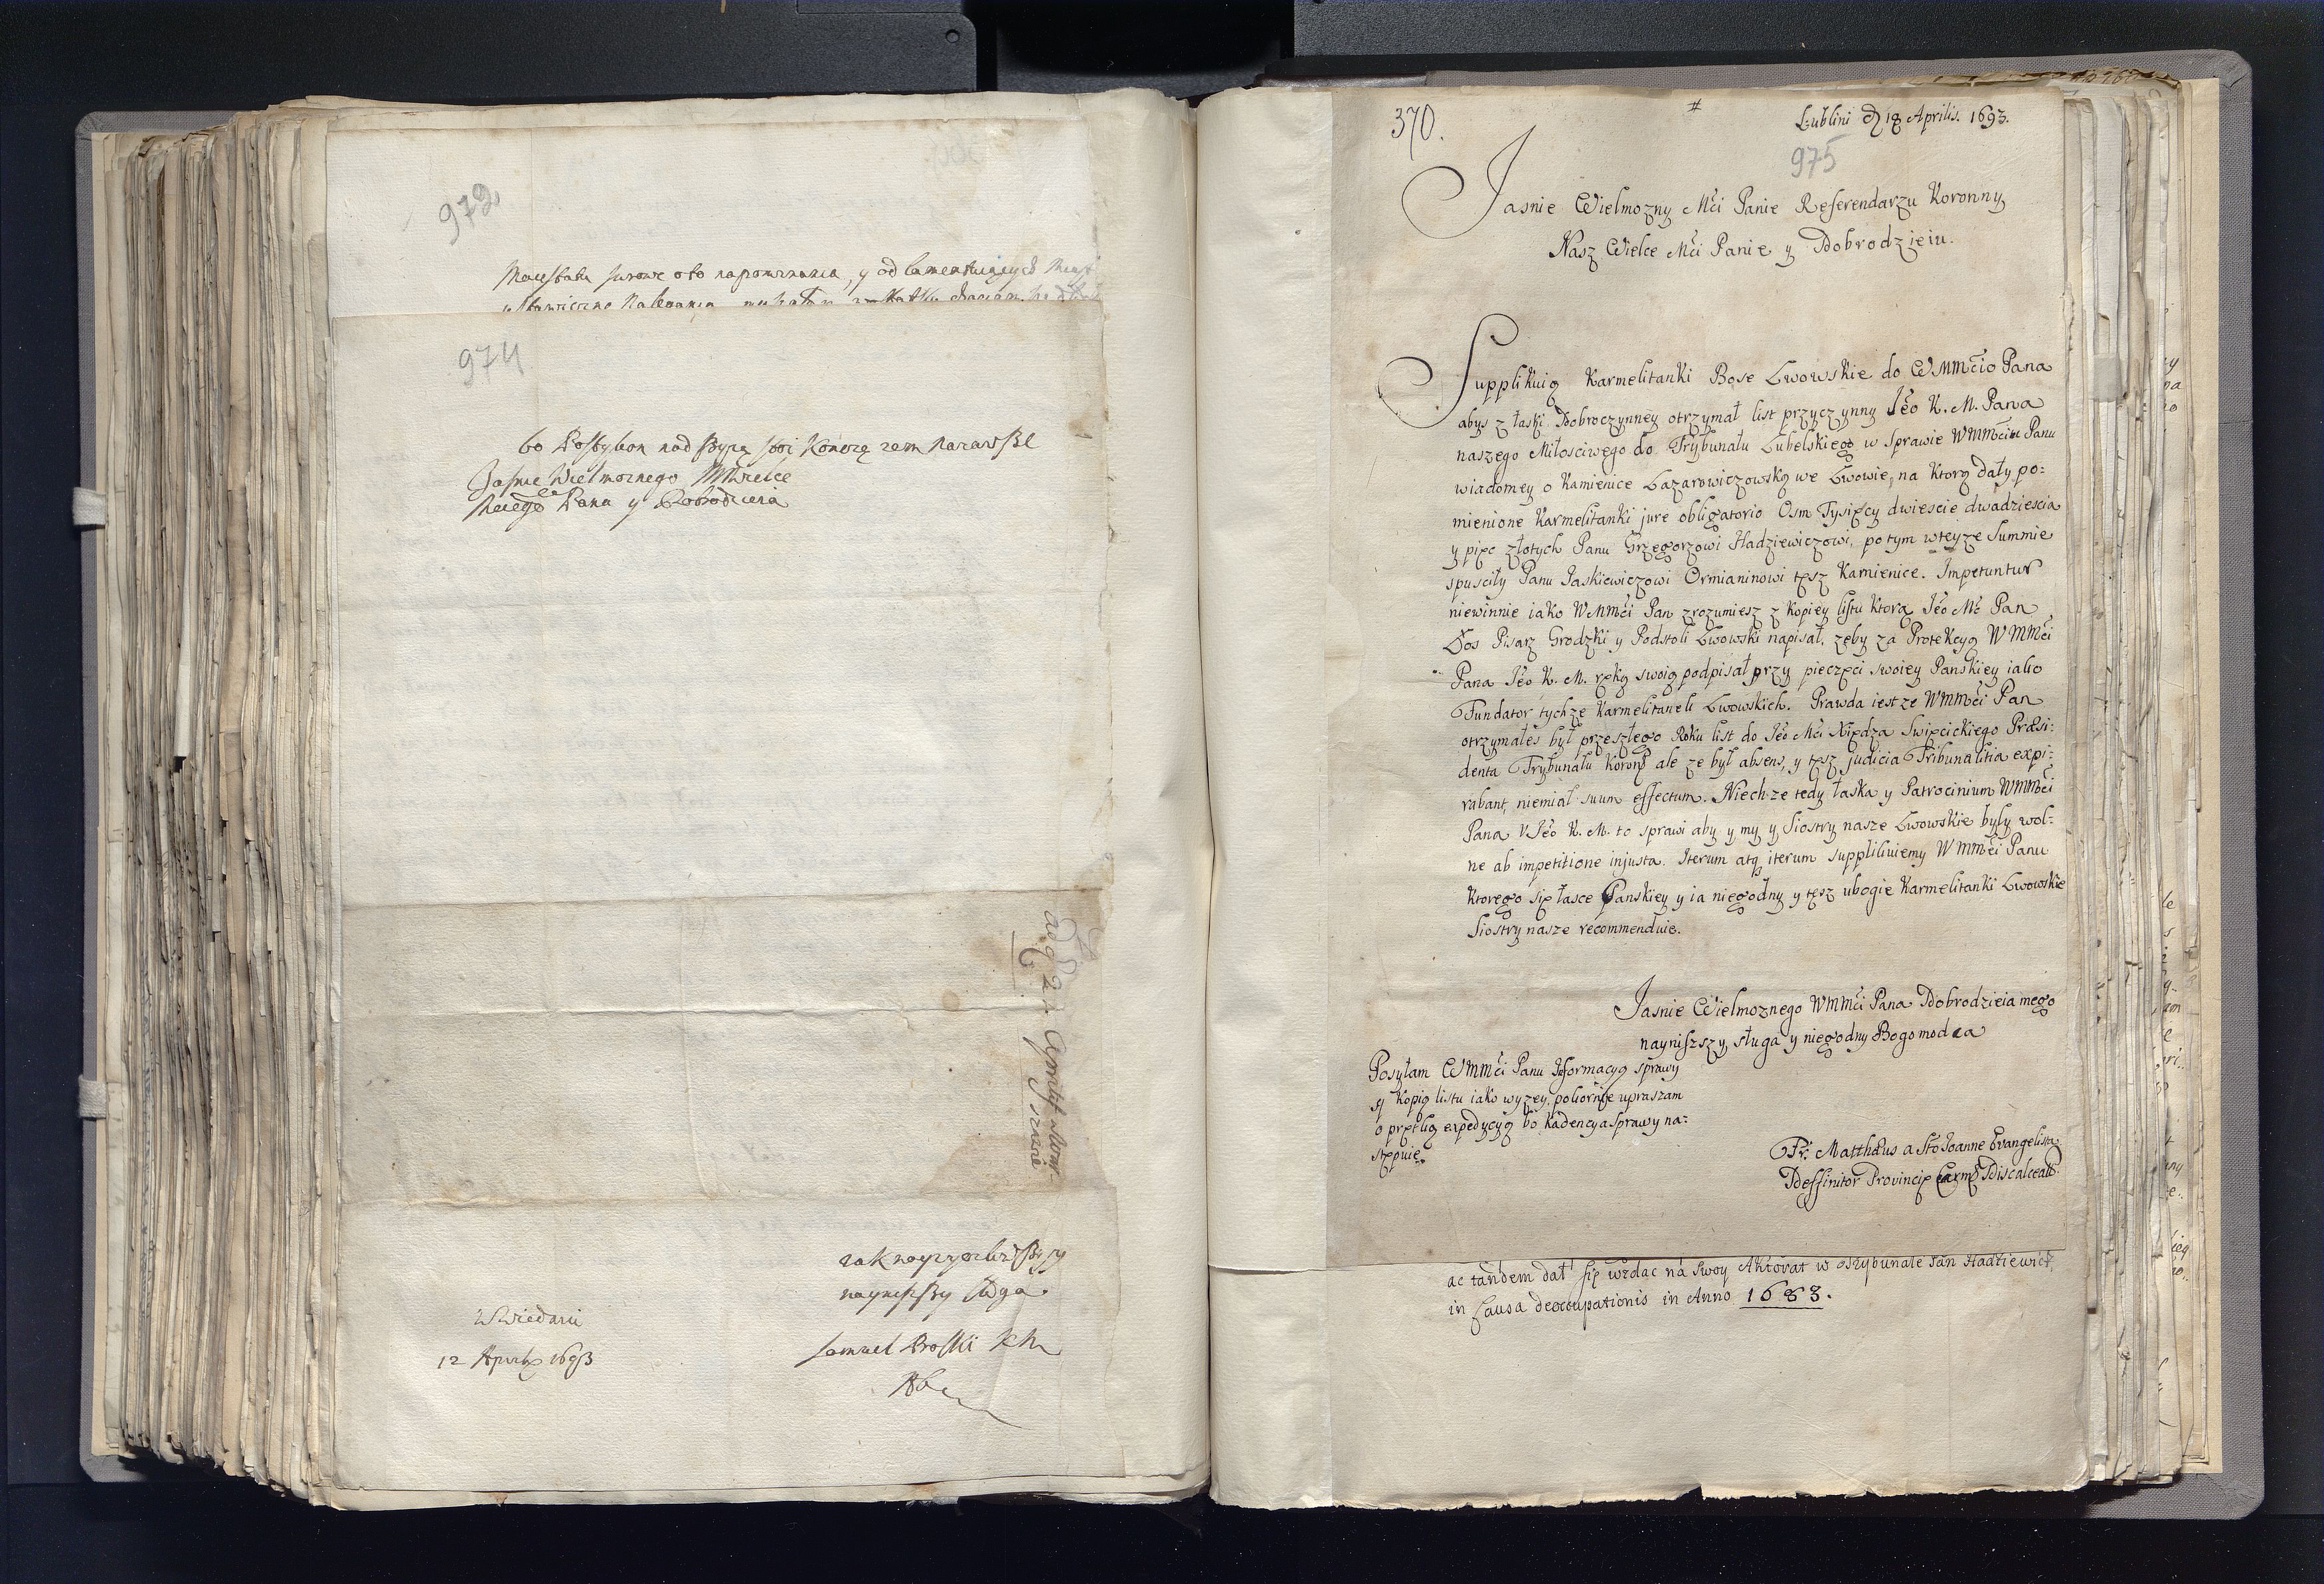 972
Maiestatu surowe oto napominania, y od lamentuiących
974
bo Postylion nad szyią stoi kończę zem nazawsze
Jasnie Wielmoznego MMwielce
Mnego Pana y Dobrodzieia
Aprilis
nayniszszy sługa
Samuel Proski
W Wiedniu
12 Aprilis 1693
370.
#
Lublini d 18 Aprilis. 1693.
975
Jasnie Wielmozny Mći Panie Referendarzu Koronny
Nasz Wielce Mći Panie y Dobrodzieiu.
Supplikuią Karmelitanki Bose Lwowskie do WMMćio Pana
abys z łaski Dobroczynney otrzymał list przyczynny Jeo K. M. Pana
naszego Miłosciwego do Trybunału Lubelskiego w sprawie WMMćiu Panu
wiadomey o Kamienice Lazarowiczowską we Lwowie, na ktorą dały po:
mienione Karmelitanki jure obligatorio Osm Tysięcy dwiescie dwadziescia
y pięc złotych Panu Grzegorzowi Hadziewiczowi, po tym wteyze Summie
spusciły Panu Jaskiewiczowi Ormianinowi tesz Kamienice. Impetuntur
niewinnie iako WMMći Pan zrozumiesz z kopiey listu ktorą Jeo Mć Pan
Łos Pisarz Grodzki y Podstoli Lwowski napisał, zeby za Protekcyą WMMći
Pana Jeo K. M. ręką swoią podpisał przy pieczęci swoiey Panskiey iako
Fundator tychze Karmelitanek Lwowskich. Prawda iest ze WMMći Pan
otrzymałes był przeszłego Roku list do Jeo Mći Xiędza Swięcickiego Præsi:
denta Trybunału Koron ale ze był absens, y tesz judicia Tribunalitia expi:
rabant, niemiał suum effectum. Niech ze tedy łaska y Patrocinium WMMći
Pana v Jeo K. M. to sprawi aby y my y Siostry nasze Lwowskie były wol:
ne ab impetitione injusta. Iterum atq iterum supplikuiemy WMMći Panu
Ktorego się łasce Panskiey y ia niegodny y tesz ubogie Karmelitanki Lwowskie
Siostry nasze recommenduie.
Jasnie Wielmoznego WMMći Pana Dobrodzieia mego
nayniszszy sługa y niegodny Bogomodca
Posyłam WMMći Panu Informacyą sprawy
y kopią listu iako wyzey, pokornie upraszam
o prętką expedycyą bo kadencya sprawy na:
stępuie.
Fr. Matthæus a Sto Joanne Evangelista
Deffinitor Provinciæ Carm Discalceato
ac tandem dał się wzdac na swoy Aktorat w Trybunale Jan Hadziewicz,
in Causa deoccupationis in Anno 1683.